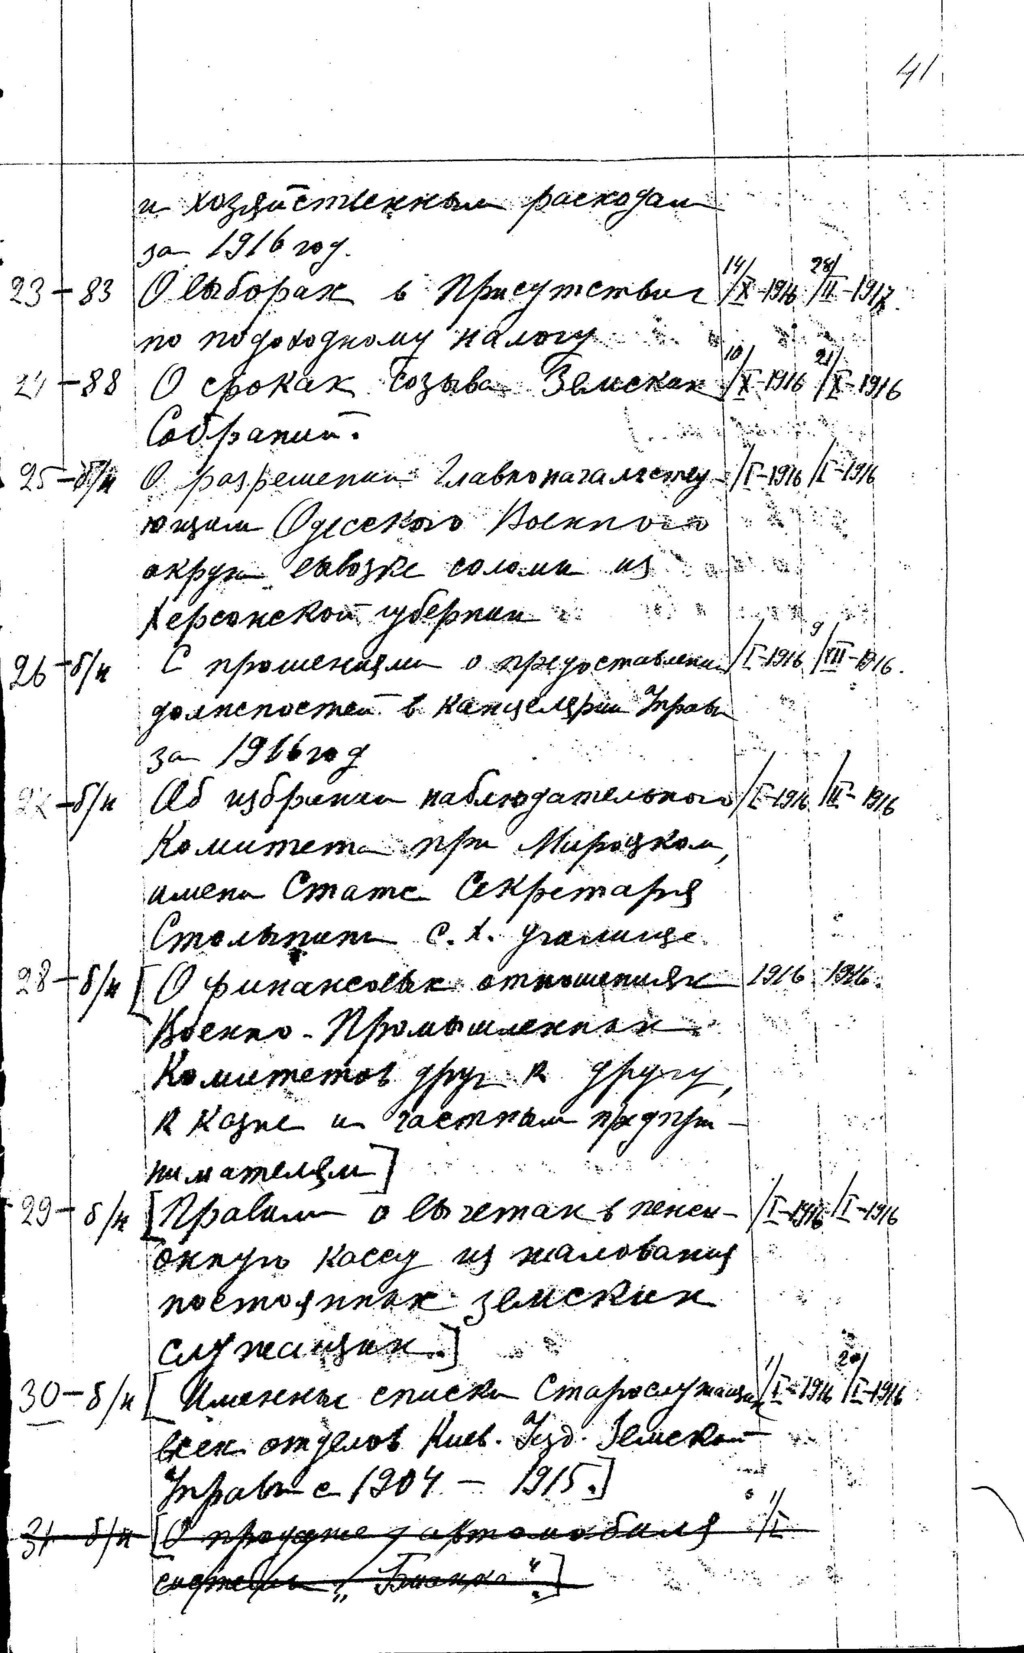 41
и хозяйственным расходам
за 1916 год.
23 - 83 О выборах в Присутствия 14/X-1916 28/II-1917
по подоходному налогу
24 - 88 О сроках созыва Земских 10/X-1916 21/X-1916
Собраний.
25 - б/н О разрешении Главноначальству- /I-1916 /I-1916
ющим Одесского Военного
округа вывозке соломы из
Херсонской губернии
26 - б/н С прошениями о предоставлении /I-1916 9/XII-1916.
должностей в канцелярии Управы
за 1916 год
27 - б/н Об избрании наблюдательного /I-1916 /II-1916
Комитета при Мироцком,
имени Статс Секретаря
Столыпина с. х. училище.
28 - б/н [О финансовых отношениях 1916 1916.
Военно-Промышленных
Комитетов друг к другу,
к казне и частным предпри-
нимателям]
29 - б/н [Правила о вычетах в пенси- /I-1916 /I-1916
онную кассу из жалования
постоянных земских
служащих.]
30 - б/н [Именные списки старослужащих 1/I-1916 20/I-1916
всех отделов Киев. Уезд. Земской
Управы с 1904 - 1915.]
31 - б/н [О продаже автомобиля 1/I
системы „Бианки“.]